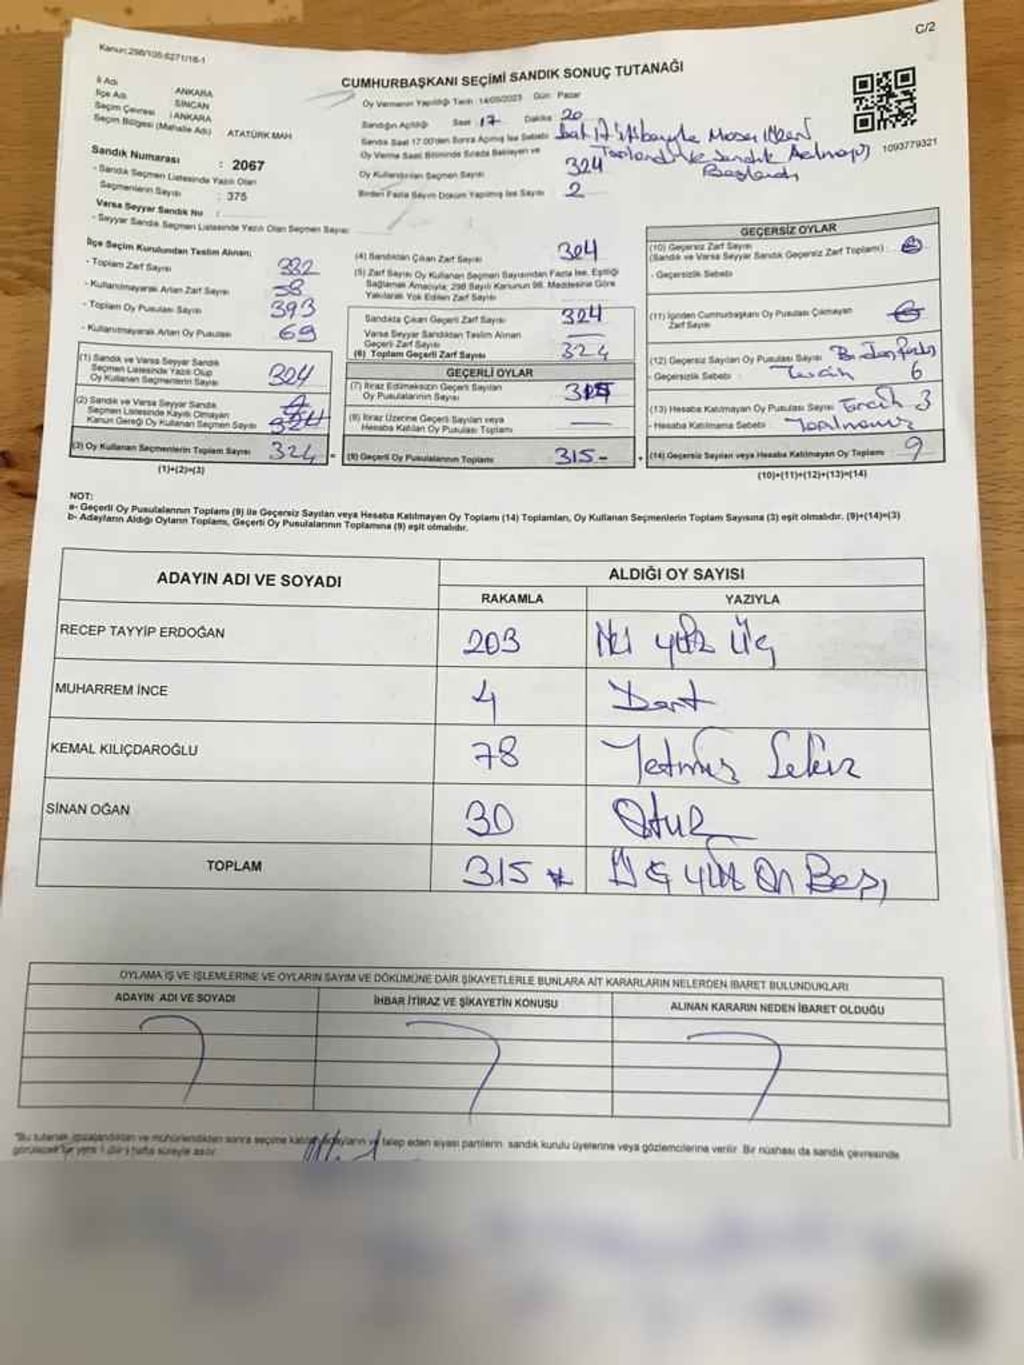 C/2
Kanun: 298/105-6271/16-1
CUMHURBAŞKANI SEÇİMİ SANDIK SONUÇ TUTANAĞI
İl Adı ANKARA
İlçe Adı SİNCAN
Seçim Çevresi : ANKARA
Seçim Bölgesi (Mahalle Adı) ATATÜRK MAH
Sandık Numarası : 2067
- Sandık Seçmen Listesinde Yazılı Olan
Seçmenlerin Sayısı : 375
Varsa Seyyar Sandık No :
- Seyyar Sandık Seçmen Listesinde Yazılı Olan Seçmen Sayısı:
Oy Vermenin Yapıldığı Tarih : 14/05/2023 Gün: Pazar
Sandığın Açıldığı Saat 17 Dakika 20
Sandık Saat 17.00'den Sonra Açılmış İse Sebebi
Oy Verme Saati Bitiminde Sırada Bekleyen ve
Oy Kullandırılan Seçmen Sayısı 324
Birden Fazla Sayım Döküm Yapılmış İse Sayısı 2
1093779321
İlçe Seçim Kurulundan Teslim Alınan:
- Toplam Zarf Sayısı 382
- Kullanılmayarak Artan Zarf Sayısı 58
- Toplam Oy Pusulası Sayısı 393
- Kullanılmayarak Artan Oy Pusulası 69
(1) Sandık ve Varsa Seyyar Sandık
Seçmen Listesinde Yazılı Olup
Oy Kullanan Seçmenlerin Sayısı 324
(2) Sandık ve Varsa Seyyar Sandık
Seçmen Listesinde Kayıtlı Olmayan
Kanun Gereği Oy Kullanan Seçmen Sayısı
(3) Oy Kullanan Seçmenlerin Toplam Sayısı 324 =
(1)+(2)=(3)
(4) Sandıktan Çıkan Zarf Sayısı 324
(5) Zarf Sayısı Oy Kullanan Seçmen Sayısından Fazla İse, Eşitliği
Sağlamak Amacıyla; 298 Sayılı Kanunun 98. Maddesine Göre
Yakılarak Yok Edilen Zarf Sayısı
Sandıkta Çıkan Geçerli Zarf Sayısı 324
Varsa Seyyar Sandıktan Teslim Alınan
Geçerli Zarf Sayısı
(6) Toplam Geçerli Zarf Sayısı 324
GEÇERLİ OYLAR
(7) İtiraz Edilmeksizin Geçerli Sayılan
Oy Pusulalarının Sayısı 315
(8) İtiraz Üzerine Geçerli Sayılan veya
Hesaba Katılan Oy Pusulası Toplamı
(9) Geçerli Oy Pusulalarının Toplamı 315- +
GEÇERSİZ OYLAR
(10) Geçersiz Zarf Sayısı
(Sandık ve Varsa Seyyar Sandık Geçersiz Zarf Toplamı) :
- Geçersizlik Sebebi
(11) İçinden Cumhurbaşkanı Oy Pusulası Çıkmayan
Zarf Sayısı
(12) Geçersiz Sayılan Oy Pusulası Sayısı
- Geçersizlik Sebebi : Tercih 6
(13) Hesaba Katılmayan Oy Pusulası Sayısı Tercih 3
- Hesaba Katılmama Sebebi
(14) Geçersiz Sayılan veya Hesaba Katılmayan Oy Toplamı : 9
(10)+(11)+(12)+(13)=(14)
NOT:
a- Geçerli Oy Pusulalarının Toplamı (9) ile Geçersiz Sayılan veya Hesaba Katılmayan Oy Toplamı (14) Toplamları, Oy Kullanan Seçmenlerin Toplam Sayısına (3) eşit olmalıdır. (9)+(14)=(3)
b- Adayların Aldığı Oyların Toplamı, Geçerli Oy Pusulalarının Toplamına (9) eşit olmalıdır.
ADAYIN ADI VE SOYADI ALDIĞI OY SAYISI
RAKAMLA YAZIYLA
RECEP TAYYİP ERDOĞAN 203 İki yüz üç
MUHARREM İNCE 4 Dört
KEMAL KILIÇDAROĞLU 78 Yetmiş Sekiz
SİNAN OĞAN 30 Otuz
TOPLAM 315 Üç yüz On Beş
OYLAMA İŞ VE İŞLEMLERİNE VE OYLARIN SAYIM VE DÖKÜMÜNE DAİR ŞİKAYETLERLE BUNLARA AİT KARARLARIN NELERDEN İBARET BULUNDUKLARI
ADAYIN ADI VE SOYADI İHBAR İTİRAZ VE ŞİKAYETİN KONUSU ALINAN KARARIN NEDEN İBARET OLDUĞU
"Bu tutanak, imzalandıktan ve mühürlendikten sonra seçime katılan adayların ve talep eden siyasi partilerin sandık kurulu üyelerine veya gözlemcilerine verilir. Bir nüshası da sandık çevresinde
görülecek bir yere 1 (bir) hafta süreyle asılır.